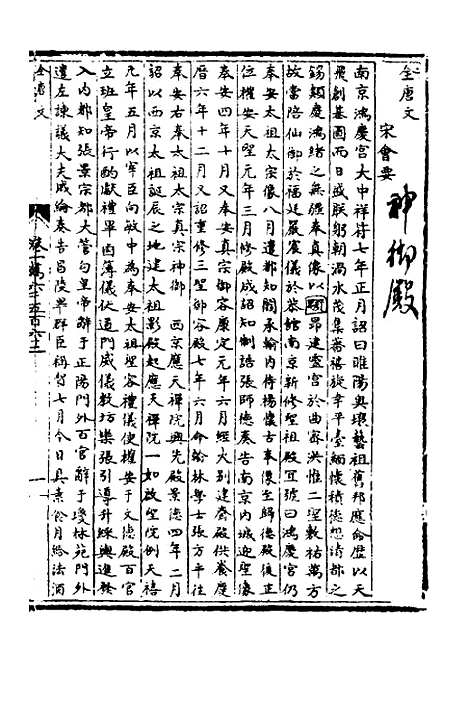 全唐文
宋會要
神御殿
南京鴻慶宮大中祥符七年正月詔曰睢陽奧壤藝祖舊邦應命歷以天
飛創基圖而日盛朕躬朝渦水茂集蕃禧旋幸平臺緬懷積德想清都之
錫類慶鴻緒之無疆奉真像以顒昂建靈宮於曲密洪惟二聖敷祐萬方
故當陪仙御於福庭嚴賓儀於恭館南京新修聖祖殿宜號曰鴻慶宮仍
奉安太祖太宗像八月遣都知閻承翰內侍楊懷古奉像至歸德殿復正
位權安天聖元年三月修殿成詔知制誥張師德奏告南京內城迎聖像
奉安四年十月又奉安真宗御容康定元年六月經火別建齋殿供養慶
曆六年十二月又詔重修三聖御容殿七年六月命翰林學士張方平往
奉安右奉太祖太宗真宗神御 西京應天禪院興先殿景德四年二月
詔以西京太祖誕辰之地建太祖影殿起應天禪院一如啟聖院例天禧
元年五月以宰臣向敏中為奉安太祖聖容禮儀使權安于文德殿百官
立班皇帝行酌獻禮畢鹵簿儀仗道門威儀教坊樂張引導升綵輿進發
入內都知張景宗都大管勾皇帝辭于正陽門外百官辭于瓊林苑門外
遣左諫議大夫戚綸奏告昌陵畢群臣稱賀七月令日具素食月給法酒
全唐文
卷一萬六千五百六十三
一